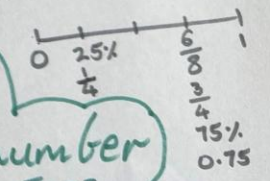 0 25% 6/8 1
1/4 3/4
75%
0.75
umber